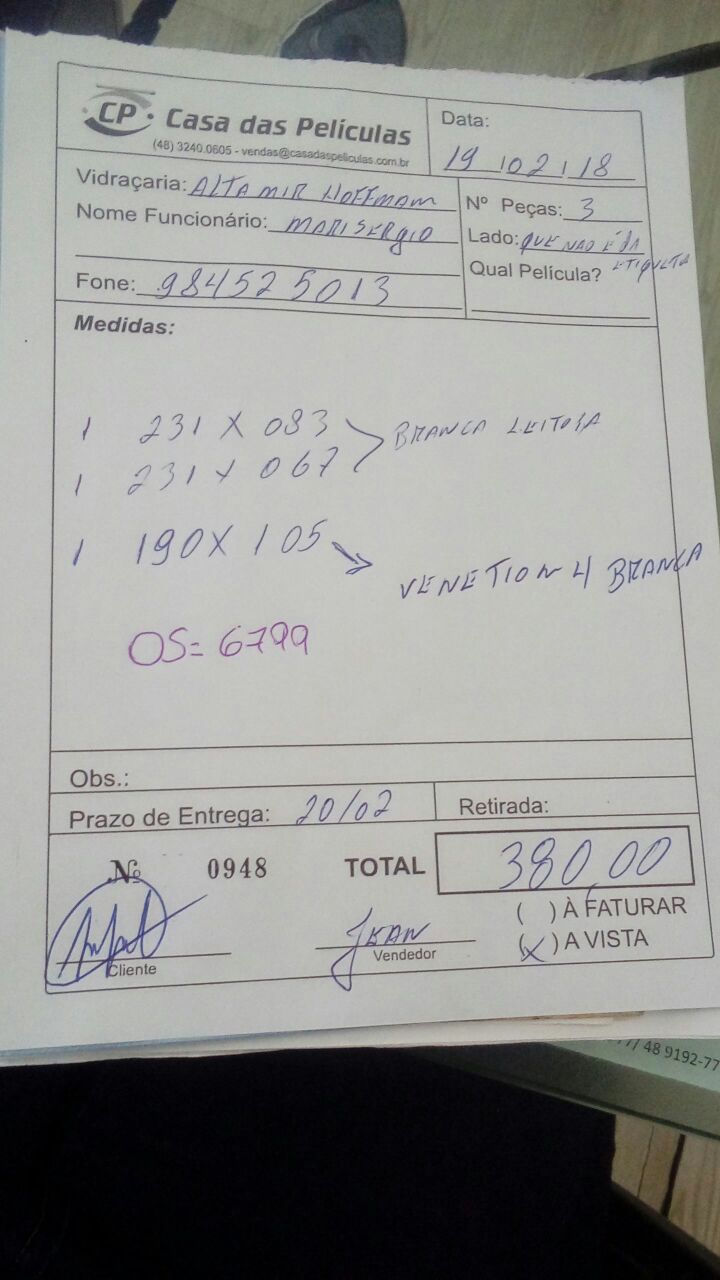 CP Casa das Películas
(48) 3240.0605 - vendas@casadaspeliculas.com.br
Data:
19/02/18
Vidraçaria: ALTAMIR HOFFMAM
Nome Funcionário: MARISERGIO
Fone: 984525013
Nº Peças: 3
Lado: QUE NAO É DA
ETIQUETA
Qual Película?
Medidas:
1 231 X 083
BRANCA LEITOSA
1 231 X 067
1 190 X 105
VENETION 4 BRANCA
OS= 6799
Obs.:
Prazo de Entrega: 20/02
Retirada:
Nº 0948
TOTAL 380,00
( ) À FATURAR
(X) A VISTA
Cliente
JEAN
Vendedor
48 9192-77